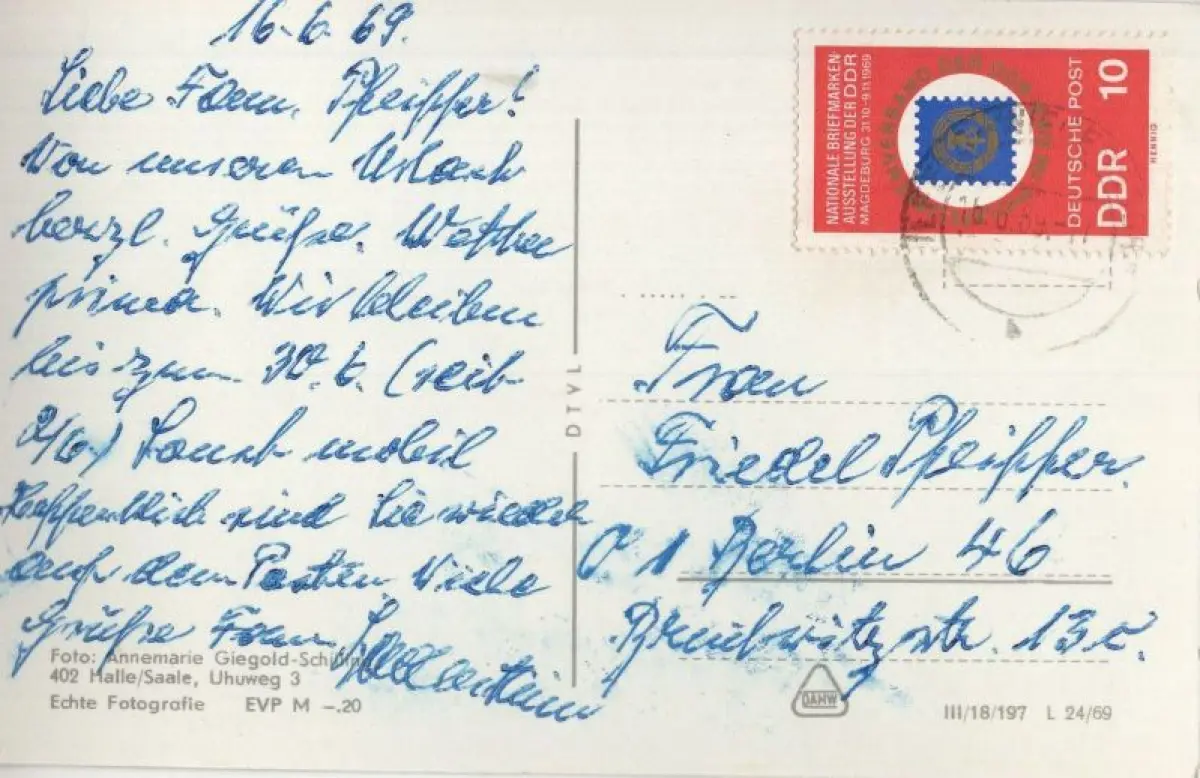 16.6.69.
Liebe Fam. Pfeiffer!
Von unserem Urlaub
herzl. Grüße. Wetter
prima. Wir bleiben
bis zum 30.6. (seit
2/6) Sonst mobil
Hoffentlich sind Sie wieder
auf dem Posten. Viele
Grüße Fam.
Foto: Annemarie Giegold-Schilling
402 Halle/Saale, Uhuweg 3
Echte Fotografie EVP M -.20
DTVL
NATIONALE BRIEFMARKEN-
AUSSTELLUNG DER DDR
MAGDEBURG 31.10-9.11.1969
DEUTSCHE POST
DDR 10
HENNIG
Frau
Friedel Pfeiffer.
1 Berlin 46
13c.
DAMW
III/18/197 L 24/69